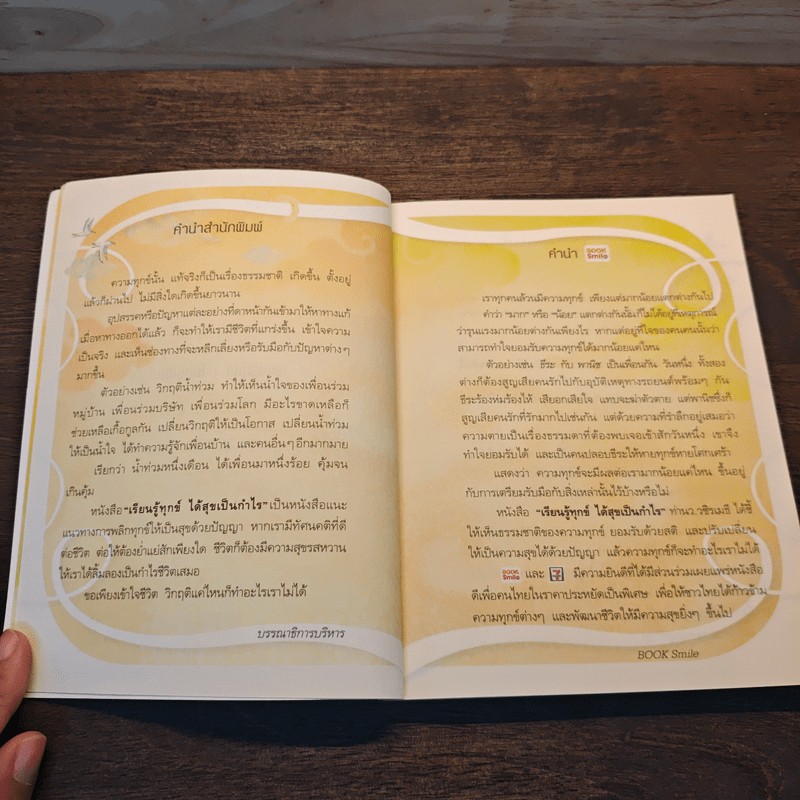 คำนำสำนักพิมพ์
ความทุกข์นั้น แท้จริงก็เป็นเรื่องธรรมชาติ เกิดขึ้น ตั้งอยู่
แล้วก็ผ่านไป ไม่มีสิ่งใดเกิดขึ้นยาวนาน
อุปสรรคหรือปัญหาแต่ละอย่างที่ดาหน้ากันเข้ามาให้หาทางแก้
เมื่อหาทางออกได้แล้ว ก็จะทำให้เรามีชีวิตที่แกร่งขึ้น เข้าใจความ
เป็นจริง และเห็นช่องทางที่จะหลีกเลี่ยงหรือรับมือกับปัญหาต่างๆ
มากขึ้น
ตัวอย่างเช่น วิกฤติน้ำท่วม ทำให้เห็นน้ำใจของเพื่อนร่วม
หมู่บ้าน เพื่อนร่วมบริษัท เพื่อนร่วมโลก มีอะไรขาดเหลือก็
ช่วยเหลือเกื้อกูลกัน เปลี่ยนวิกฤติให้เป็นโอกาส เปลี่ยนน้ำท่วม
ให้เป็นน้ำใจ ได้ทำความรู้จักเพื่อนบ้าน และคนอื่นๆ อีกมากมาย
เรียกว่า น้ำท่วมหนึ่งเดือน ได้เพื่อนมาหนึ่งร้อย คุ้มจน
เกินคุ้ม
หนังสือ "เรียนรู้ทุกข์ ได้สุขเป็นกำไร" เป็นหนังสือแนะ
แนวทางการพลิกทุกข์ให้เป็นสุขด้วยปัญญา หากเรามีทัศนคติที่ดี
ต่อชีวิต ต่อให้ต้องย่ำแย่สักเพียงใด ชีวิตก็ต้องมีความสุขรสหวาน
ให้เราได้ลิ้มลองเป็นกำไรชีวิตเสมอ
ขอเพียงเข้าใจชีวิต วิกฤติแค่ไหนก็ทำอะไรเราไม่ได้
บรรณาธิการบริหาร
คำนำ BOOK Smile
เราทุกคนล้วนมีความทุกข์ เพียงแต่มากน้อยแตกต่างกันไป
คำว่า "มาก" หรือ "น้อย" แตกต่างกันนั้นก็ไม่ได้อยู่ที่เหตุการณ์
ว่ารุนแรงมากน้อยต่างกันเพียงไร หากแต่อยู่ที่ใจของคนคนนั้นว่า
สามารถทำใจยอมรับความทุกข์ได้มากน้อยแค่ไหน
ตัวอย่างเช่น ธีระ กับ พานิช เป็นเพื่อนกัน วันหนึ่ง ทั้งสอง
ต่างก็ต้องสูญเสียคนรักไปกับอุบัติเหตุทางรถยนต์พร้อมๆ กัน
ธีระร้องห่มร้องไห้ เสียอกเสียใจ แทบจะฆ่าตัวตาย แต่พานิชซึ่งก็
สูญเสียคนรักที่รักมากไปเช่นกัน แต่ด้วยความที่รำลึกอยู่เสมอว่า
ความตายเป็นเรื่องธรรมดาที่ต้องพบเจอเข้าสักวันหนึ่ง เขาจึง
ทำใจยอมรับได้ และเป็นคนปลอบธีระให้หายทุกข์หายโศกเศร้า
แสดงว่า ความทุกข์จะมีผลต่อเรามากน้อยแค่ไหน ขึ้นอยู่
กับการเตรียมรับมือกับสิ่งเหล่านั้นไว้บ้างหรือไม่
หนังสือ "เรียนรู้ทุกข์ ได้สุขเป็นกำไร" ท่านว.วชิรเมธี ได้ชี้
ให้เห็นธรรมชาติของความทุกข์ ยอมรับด้วยสติ และปรับเปลี่ยน
ให้เป็นความสุขได้ด้วยปัญญา แล้วความทุกข์ก็จะทำอะไรเราไม่ได้
BOOK Smile และ 7 ELEVEN มีความยินดีที่ได้มีส่วนร่วมเผยแพร่หนังสือ
ดีเพื่อคนไทยในราคาประหยัดเป็นพิเศษ เพื่อให้ชาวไทยได้ก้าวข้าม
ความทุกข์ต่างๆ และพัฒนาชีวิตให้มีความสุขยิ่งๆ ขึ้นไป
BOOK Smile